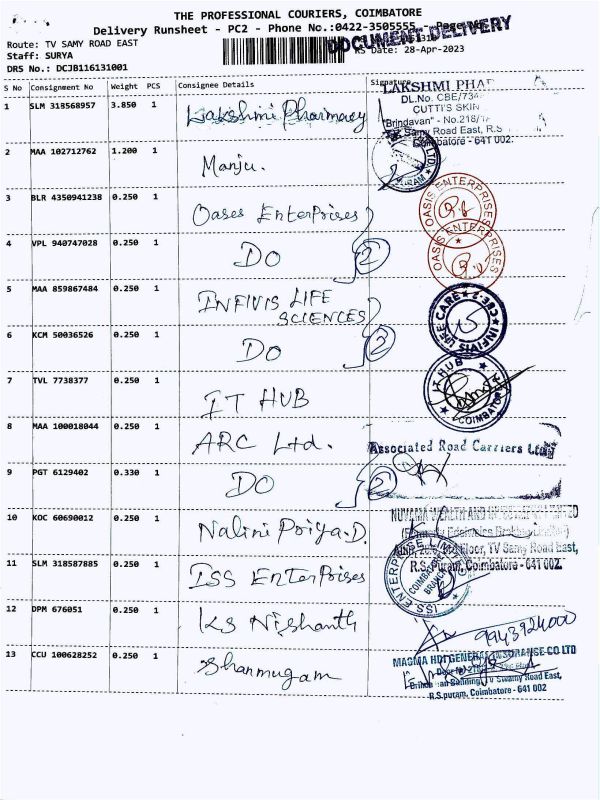 THE PROFESSIONAL COURIERS, COIMBATORE
Delivery Runsheet - PC2 - Phone No.:0422-3505555
DOCUMENT DELIVERY
Route: TV SAMY ROAD EAST
Staff: SURYA
RS Date: 28-Apr-2023
DRS No.: DCJB116131001
S No Consignment No Weight PCS Consignee Details Signature
1 SLM 318568957 3.850 1 Lakshmi Pharmacy
LAKSHMI PHAR
DL.No. CBE/734
CUTTI'S SKIN
"Brindavan" - No.218/
Samy Road East, R.S
Coimbatore - 641 002.
2 MAA 102712762 1.200 1 Manju.
3 BLR 4350941238 0.250 1 Oases Enterprises
OASIS ENTERPRISES
4 VPL 940747028 0.250 1 DO 2
OASIS ENTERPRISES
5 MAA 859867484 0.250 1 INFIVIS LIFE
SCIENCES
INFIVIS LIFE CARE CBE-2
6 KCM 50036526 0.250 1 DO 2
7 TVL 7738377 0.250 1 IT HUB
IT HUB COIMBATORE
8 MAA 100018044 0.250 1 ARC Ltd.
Associated Road Carriers Ltd
9 PGT 6129402 0.330 1 DO 2
10 KOC 60690012 0.250 1 Nalini Priya.D.
NUVAMA WEALTH AND
Floor, TV Samy Road East,
R.S. Puram, Coimbatore - 641 002.
11 SLM 318587885 0.250 1 ISS Enterprises
ISS ENTERPRISE LIMITED
COIMBATORE BRANCH
12 DPM 676051 0.250 1 KS Nishanth
9943924000
13 CCU 100628252 0.250 1 Shanmugam
MAGMA HDI GENERAL INSURANSE CO LTD
Swamy Road East,
R.S.puram, Coimbatore - 641 002